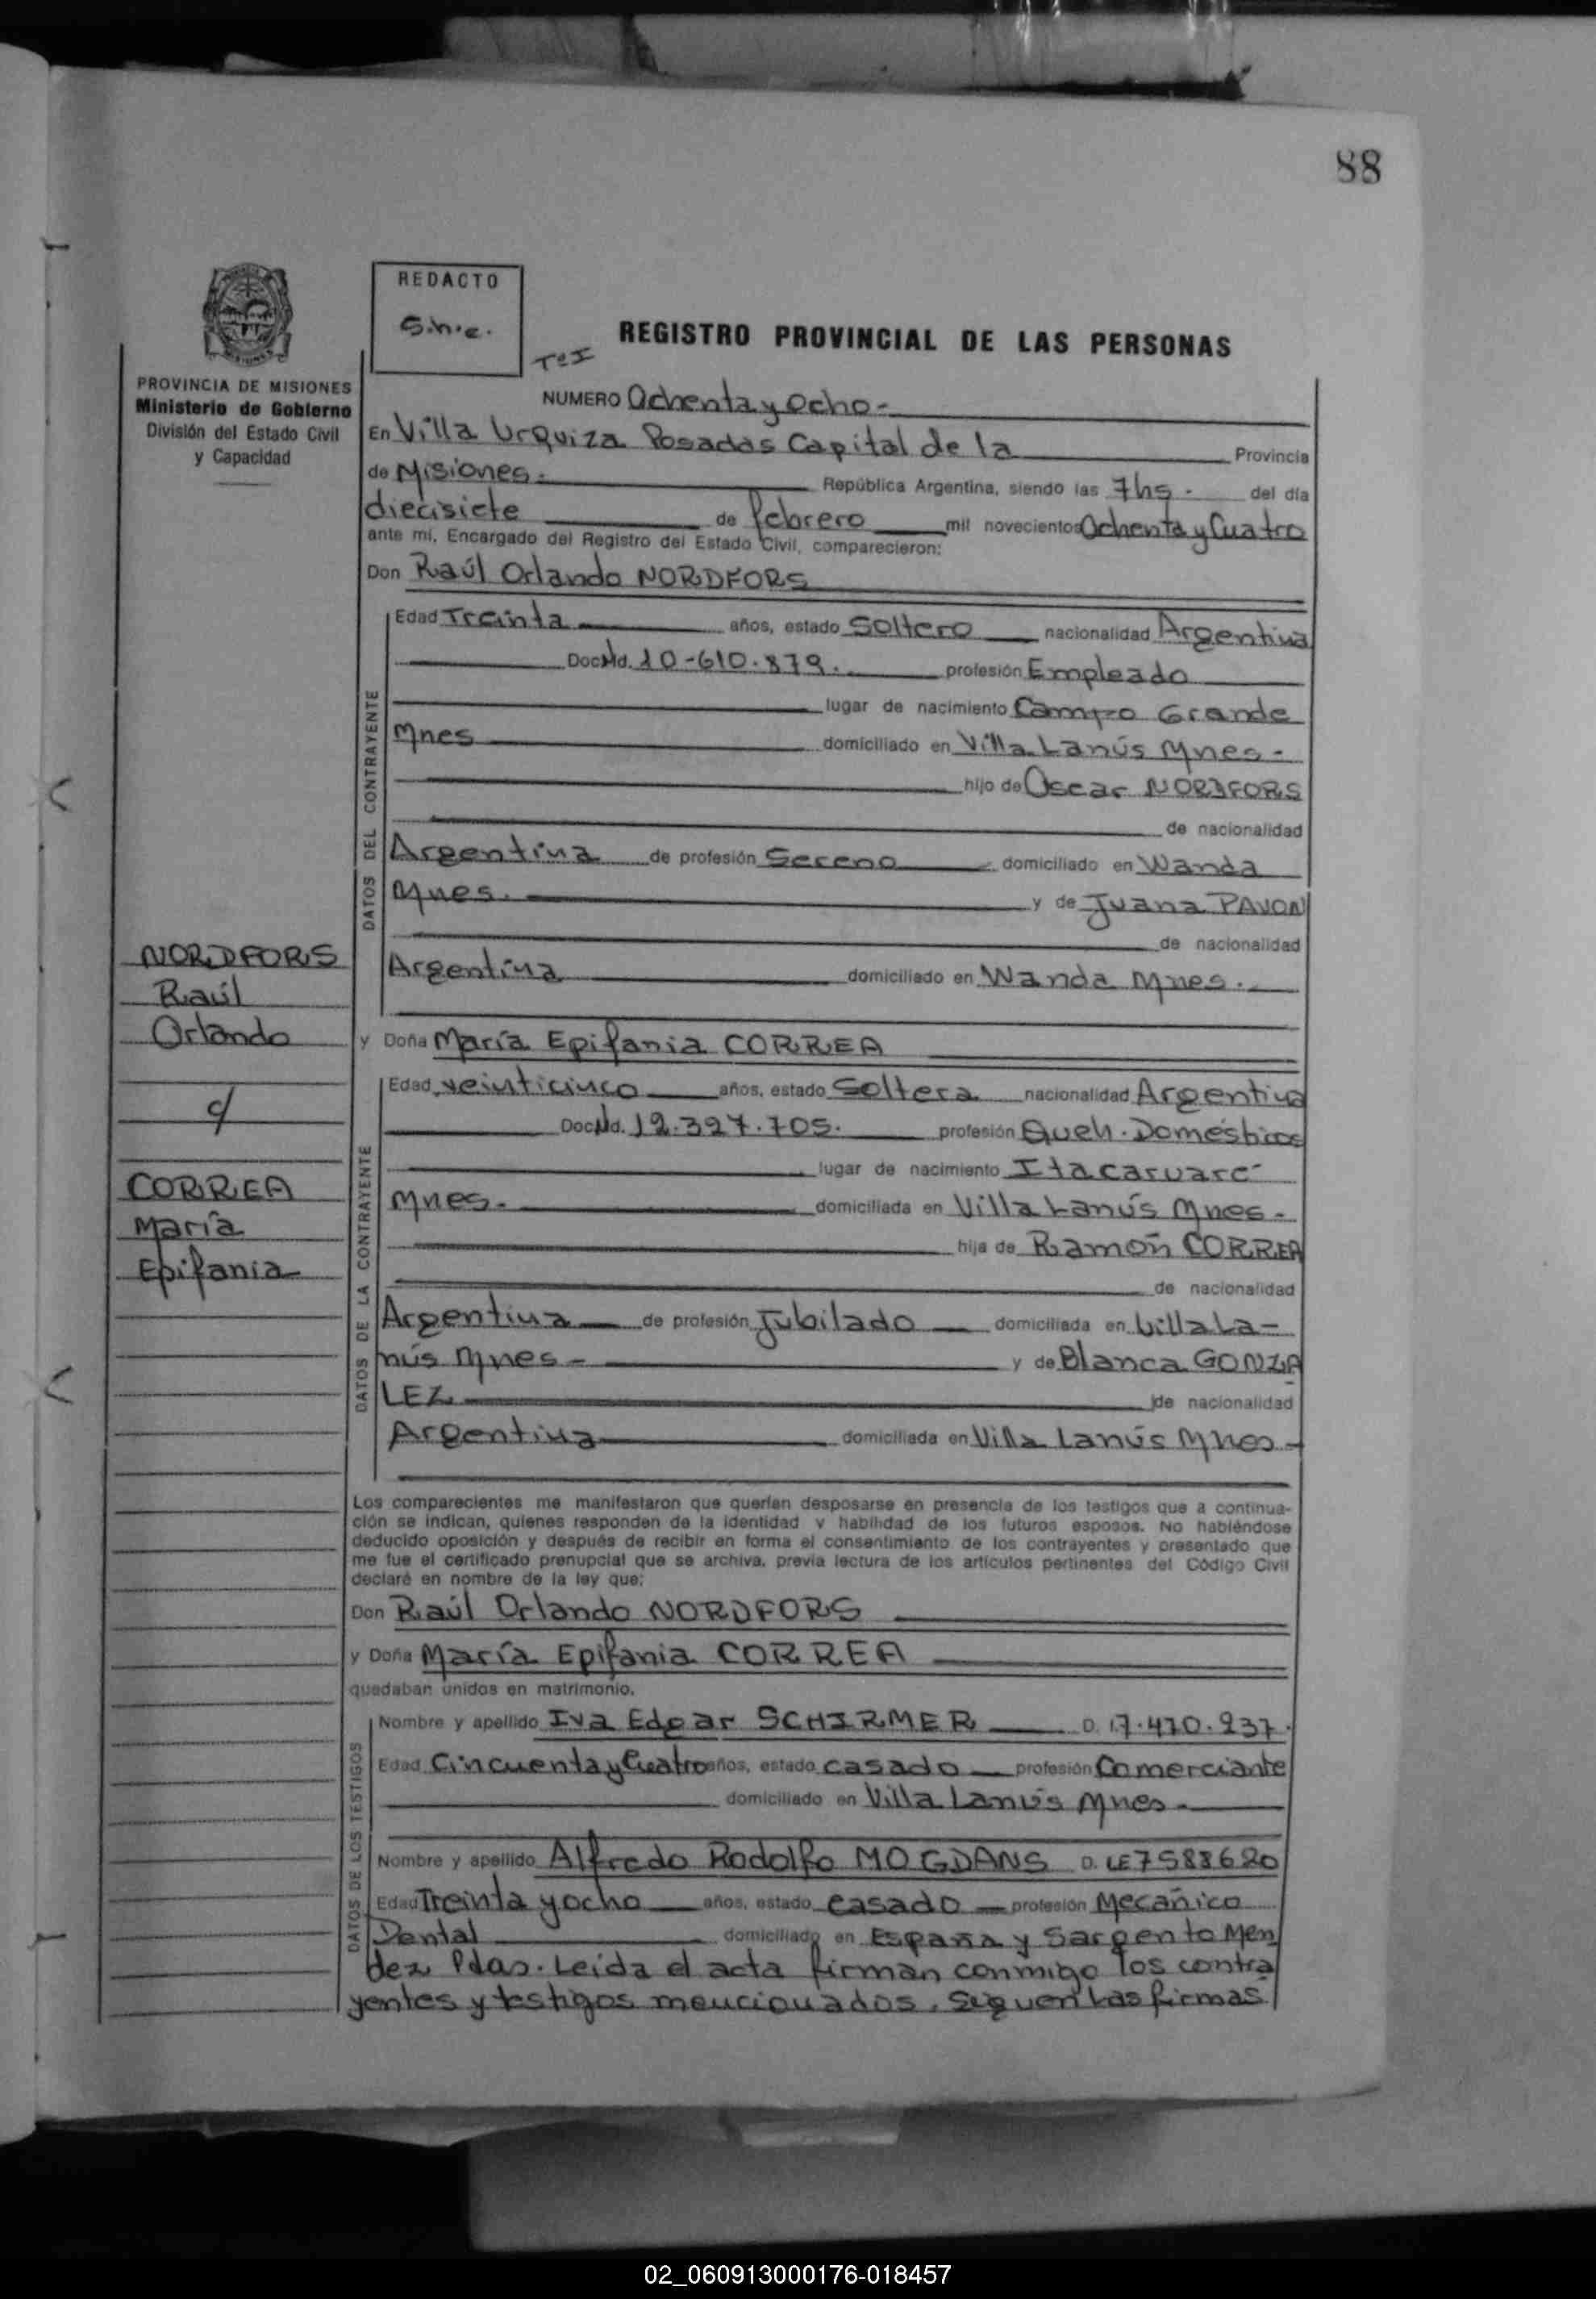 88
REDACTO
S.h.e.
REGISTRO PROVINCIAL DE LAS PERSONAS
Tº I
PROVINCIA DE MISIONES
Ministerio de Gobierno
División del Estado Civil
y Capacidad
NUMERO Ochenta y Ocho-
En Villa Urquiza Posadas Capital de la Provincia
de Misiones. República Argentina, siendo las 7hs. del día
diecisiete de febrero mil novecientos Ochenta y Cuatro
ante mí, Encargado del Registro del Estado Civil, comparecieron:
Don Raúl Orlando NORDFORS
DATOS DEL CONTRAYENTE
Edad Treinta años, estado Soltero nacionalidad Argentina
Doc Nd. 10-610.879. profesión Empleado
lugar de nacimiento Campo Grande
Mnes domiciliado en Villa Lanús Mnes-
hijo de Oscar NORDFORS
de nacionalidad
Argentina de profesión Sereno domiciliado en Wanda
Mnes. y de Juana PAVON
de nacionalidad
Argentina domiciliado en Wanda Mnes.
NORDFORS
Raúl
Orlando
c/
CORREA
María
Epifania
y Doña María Epifania CORREA
DATOS DE LA CONTRAYENTE
Edad veinticinco años, estado Soltera nacionalidad Argentina
Doc Nd. 12.327.705. profesión Queh. Domésticos
lugar de nacimiento Itacaruaré
Mnes. domiciliada en Villa Lanús Mnes-
hija de Ramón CORREA
de nacionalidad
Argentina de profesión Jubilado domiciliada en Villa La-
nús Mnes- y de Blanca GONZA
LEZ de nacionalidad
Argentina domiciliada en Villa Lanús Mnes-
Los comparecientes me manifestaron que querían desposarse en presencia de los testigos que a continua-
ción se indican, quienes responden de la identidad y habilidad de los futuros esposos. No habiéndose
deducido oposición y después de recibir en forma el consentimiento de los contrayentes y presentado que
me fue el certificado prenupcial que se archiva, previa lectura de los artículos pertinentes del Código Civil
declaré en nombre de la ley que:
Don Raúl Orlando NORDFORS
y Doña María Epifania CORREA
quedaban unidos en matrimonio.
DATOS DE LOS TESTIGOS
Nombre y apellido Iva Edgar SCHIRMER D. 17.470.237.
Edad Cincuenta y Cuatro años, estado casado profesión Comerciante
domiciliado en Villa Lanús Mnes-
Nombre y apellido Alfredo Rodolfo MOGDANS D. LE7588620
Edad Treinta y ocho años, estado casado profesión Mecánico
Dental domiciliado en España y Sargento Men
dez Pdas. Leída el acta firman conmigo los contra
yentes y testigos mencionados. Siguen las firmas
02_060913000176-018457